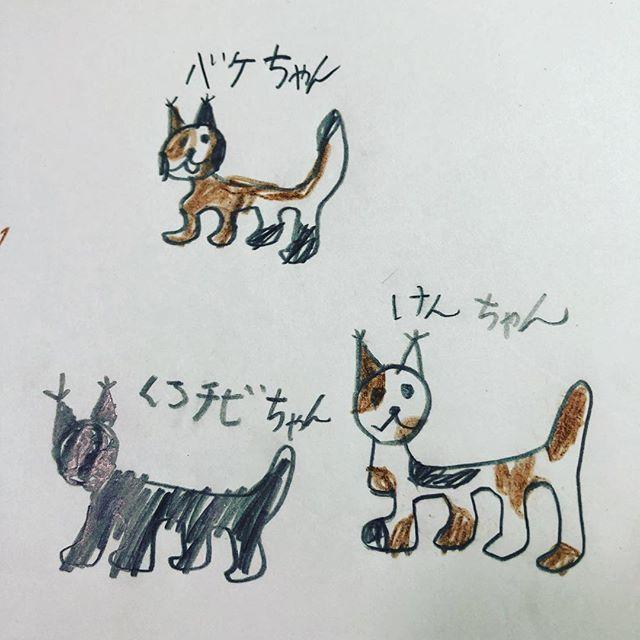 バケちゃん
けんちゃん
くろチビちゃん